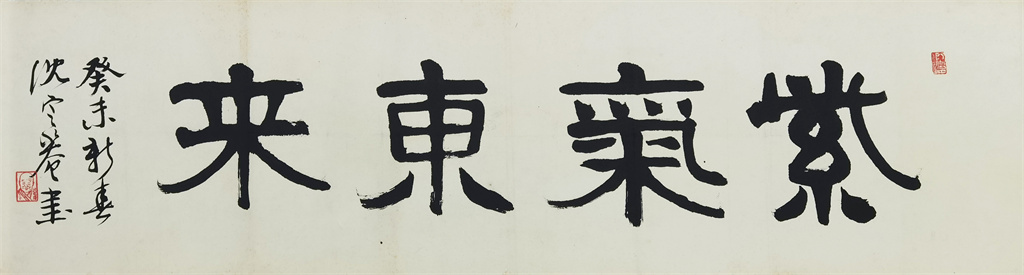 紫氣東来
癸未新春
沈定庵書